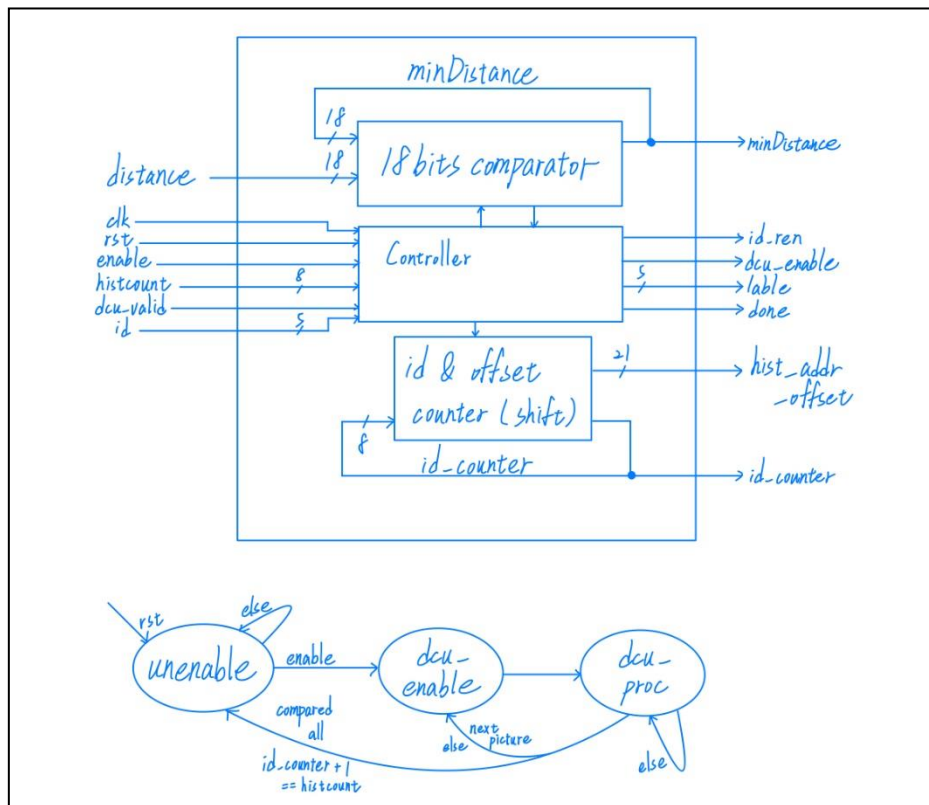 minDistance
18
18
18 bits comparator
minDistance
distance
clk
rst
enable
histcount
8
dcu_valid
id
5
Controller
id_ren
dcu_enable
5
lable
done
id & offset
counter (shift)
8
21
hist_addr
_offset
id_counter
id_counter
rst
else
unenable
enable
dcu_
enable
dcu_
proc
compared
all
id_counter + 1
== histcount
else
next
picture
else